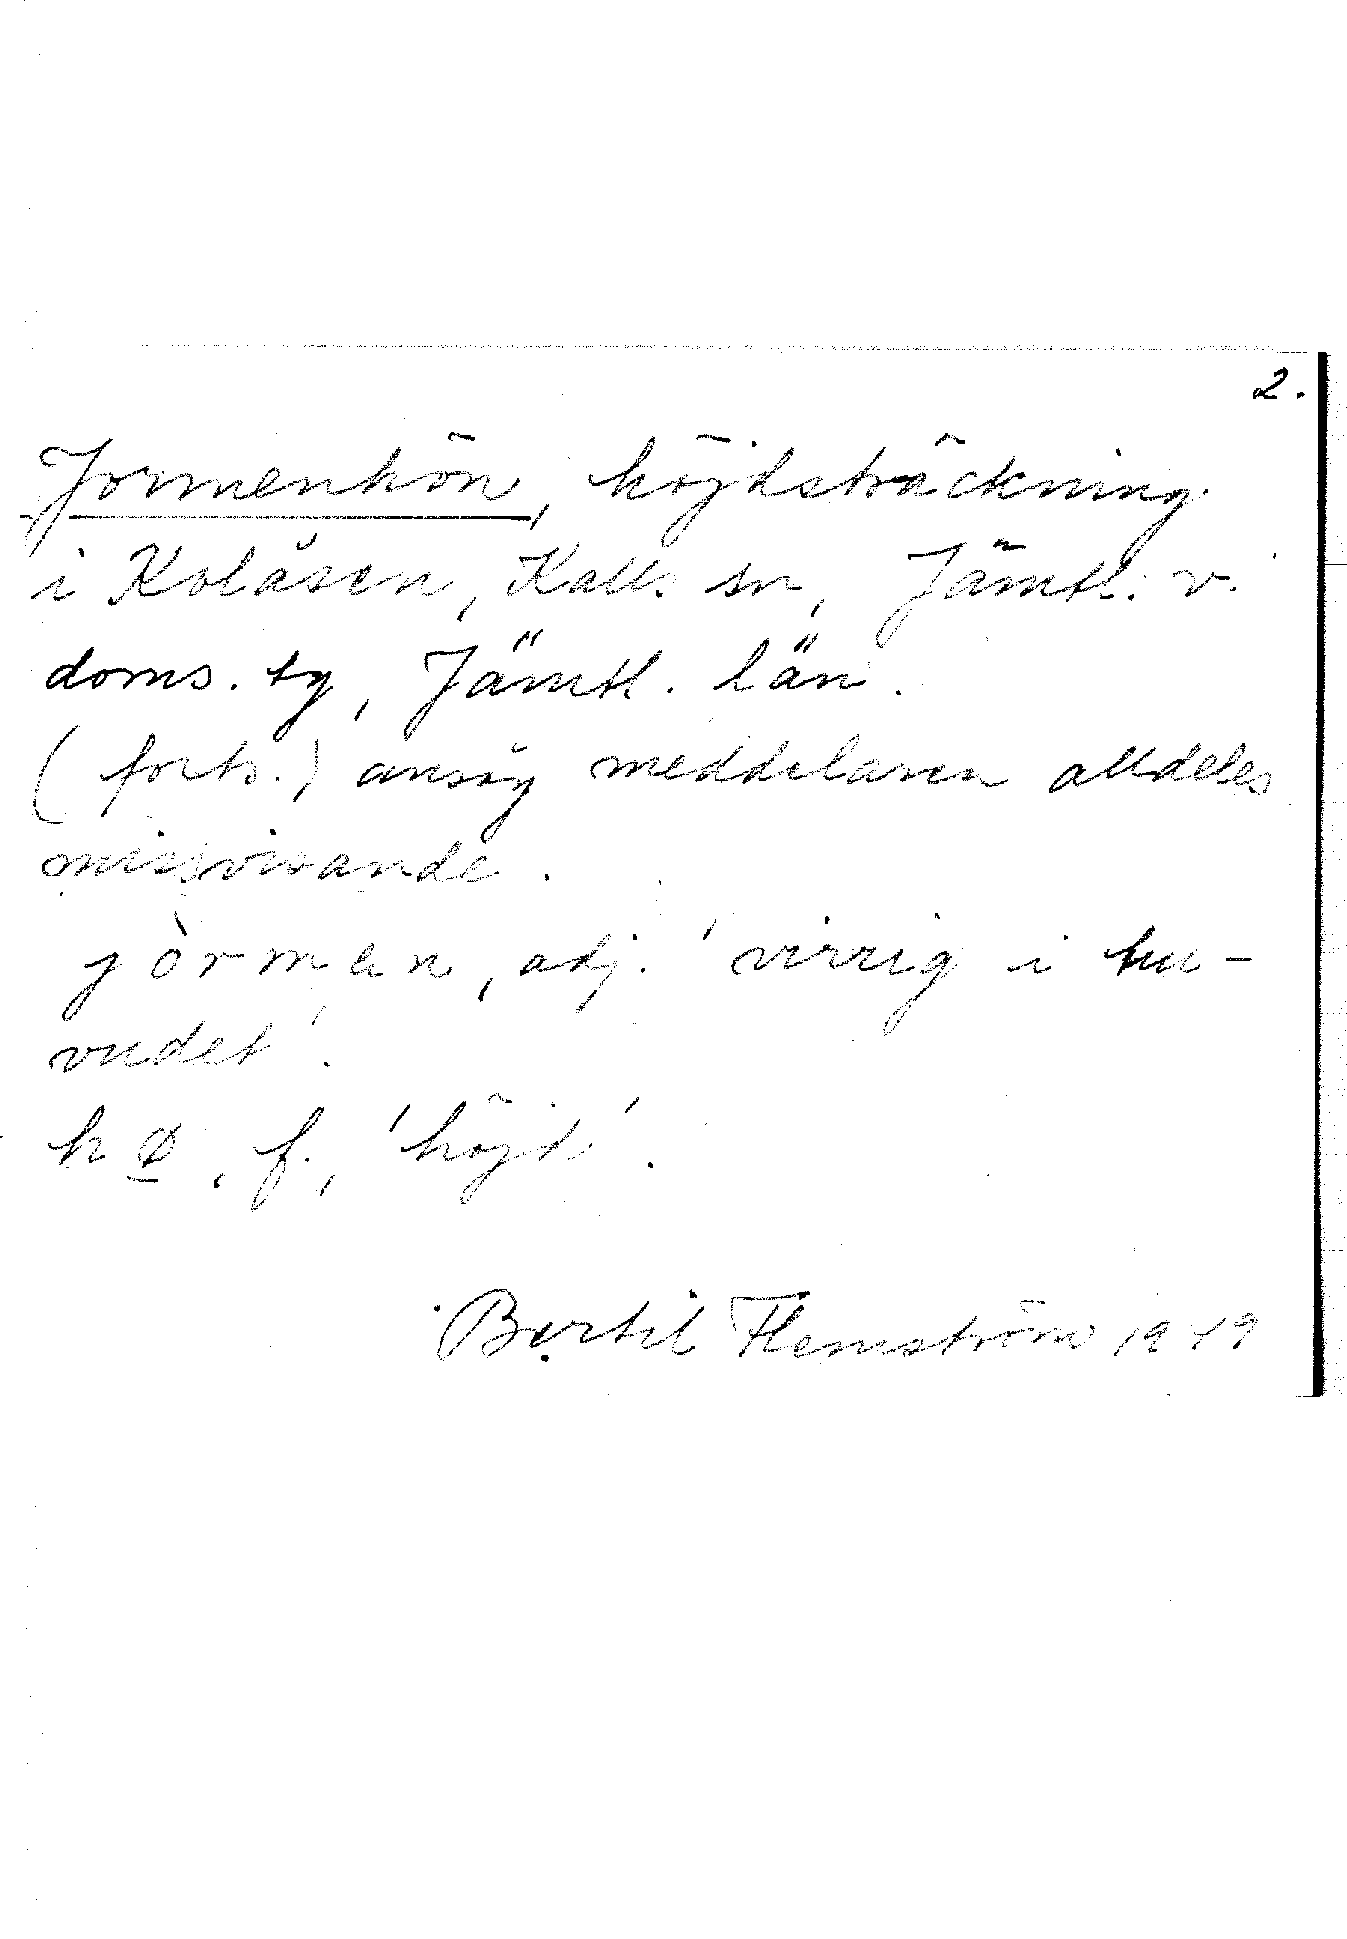 2.
Jormenhön, höjdsträckning
i Kolåsen, Kalls sn, Jämtl. v.
doms. tg, Jämtl. län.
(forts.) ansåg meddelaren alldeles
missvisande.
jòrman, adj. 'virrig i hu-
vudet'.
hø, f., 'höjd'.
Bertil Flemström 1949